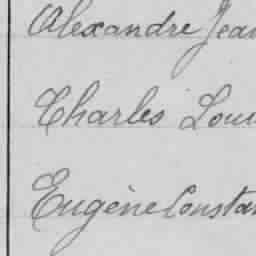 Alexandre Jean
Charles Loui
Eugène Constan